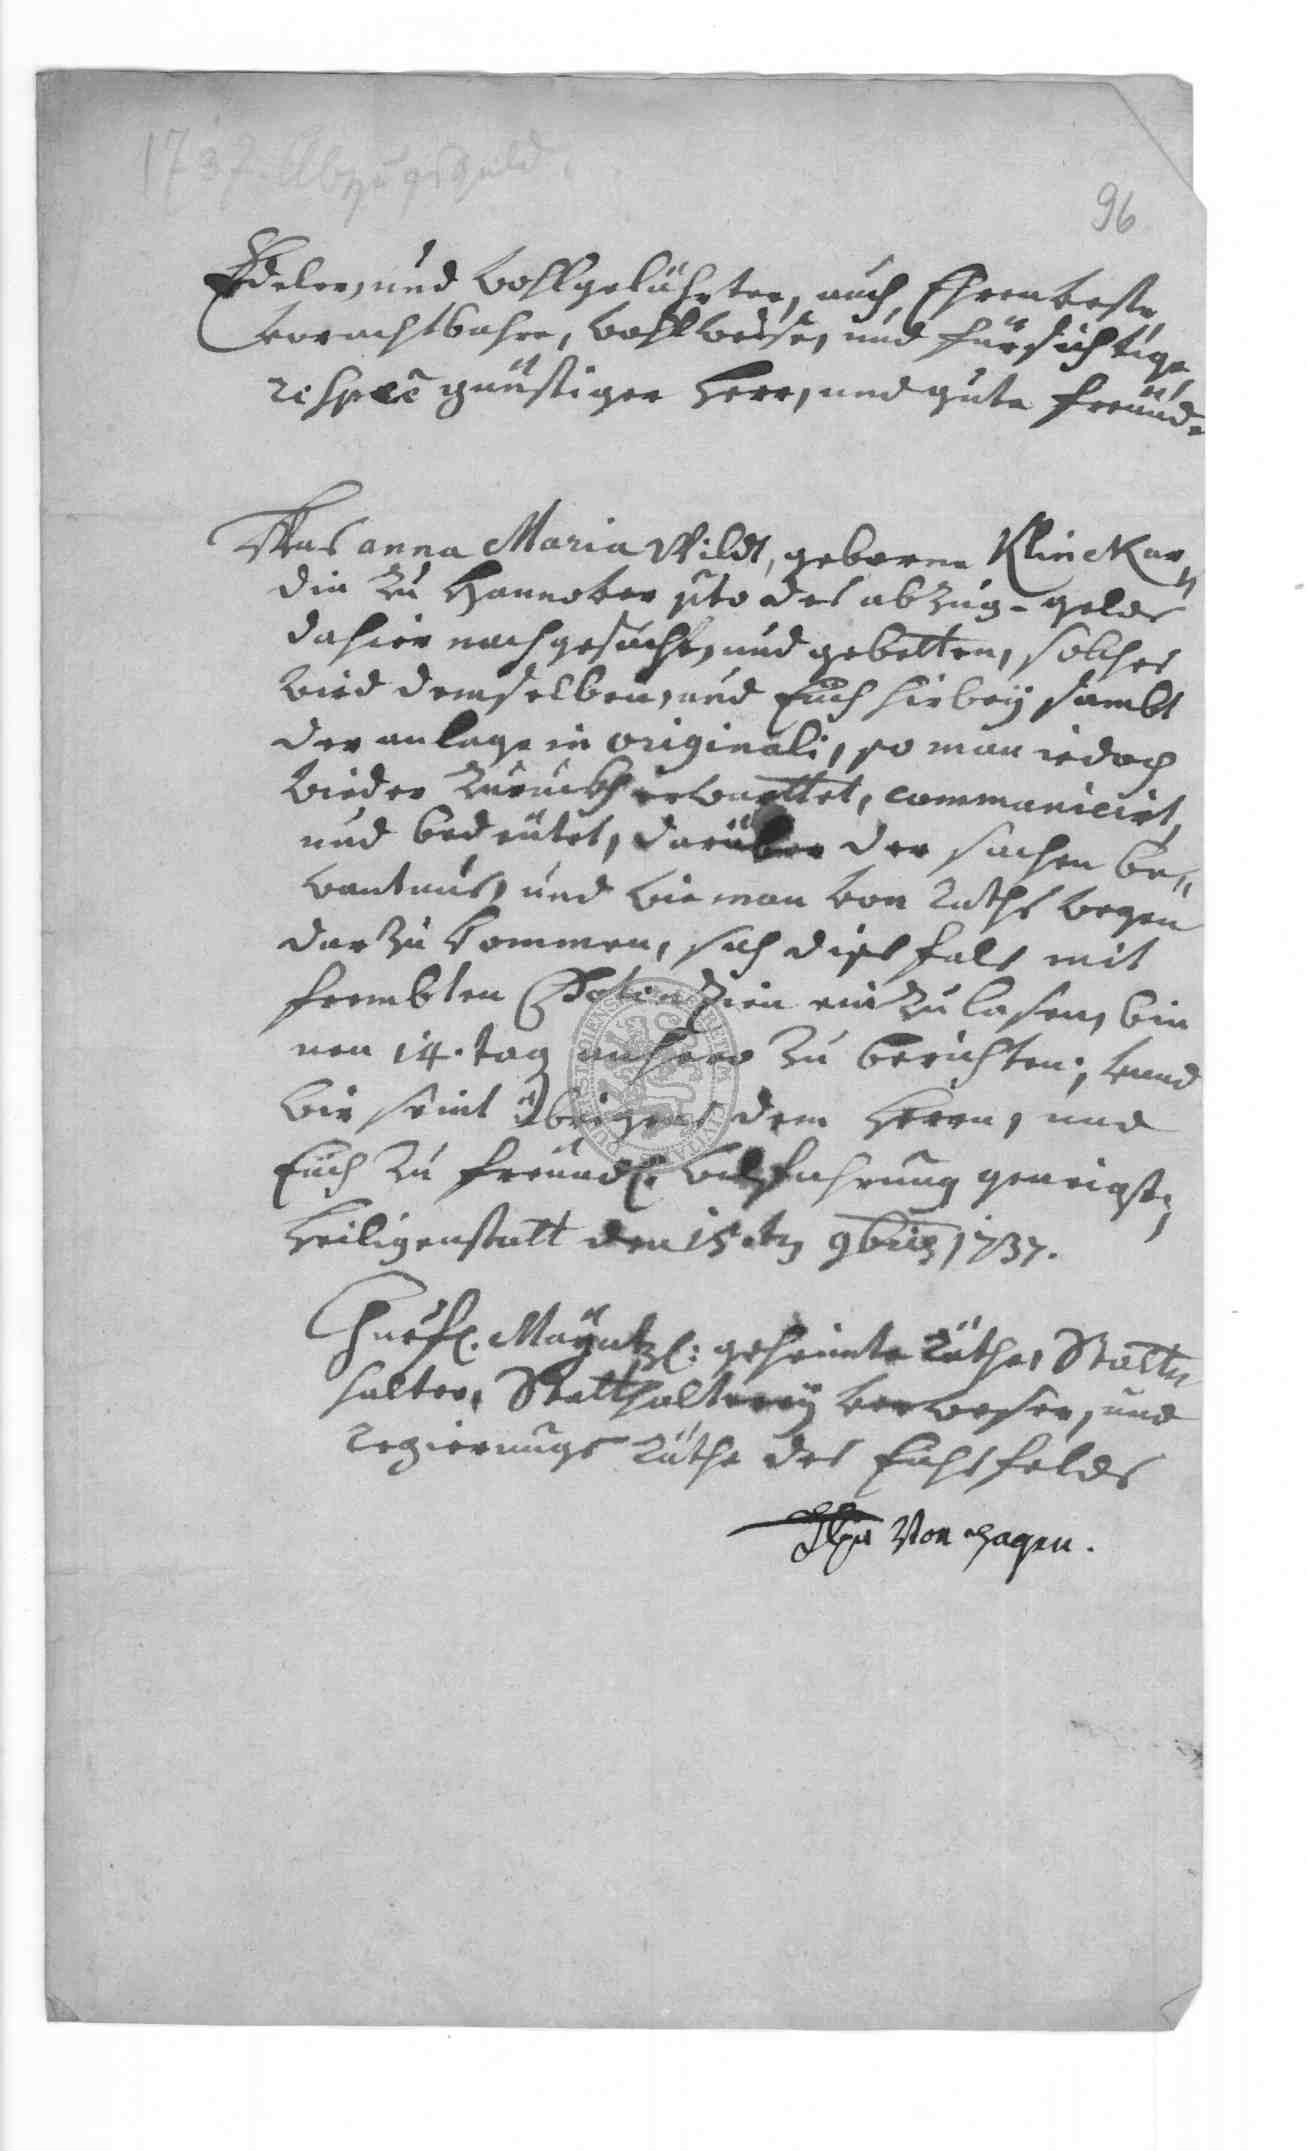 1737. Abzugsgeld.
96
Edeler, und wohlgelährter, auch, Ehrenveste,
vorachtbahre, wohlweise, und fürsichtige,
respeē günstiger Herr, und gute Freünde
Was anna Maria Wildt, geborne Klinckar„
din zu Hannover pto des abzug-gelds
dahier nachgesucht, und gebetten, solches
wird demselben, und Euch hierbey sambt
der anlage in originali, so man iedoch
wieder zurückh erwarttet, communicirt,
und bedeütet, darüber der sachen be„
wantnus, und wie man von raths wegen
darzu kommen, sich disfals mit
frembten Potenzien einzulasen, bin
nen 14. tag anhero zu berichten; unnd
wir seint übrigens dem Herrn, und
Euch zu freündl. willfahrung geneigt;
Heiligenstatt den 15.ten 9bris 1737.
Churfl. Mayntzl: geheimte räthe, Statt„
halter, Statthalterey verweser, und
regierungs räthe des Eichsfelds
von Hagen.